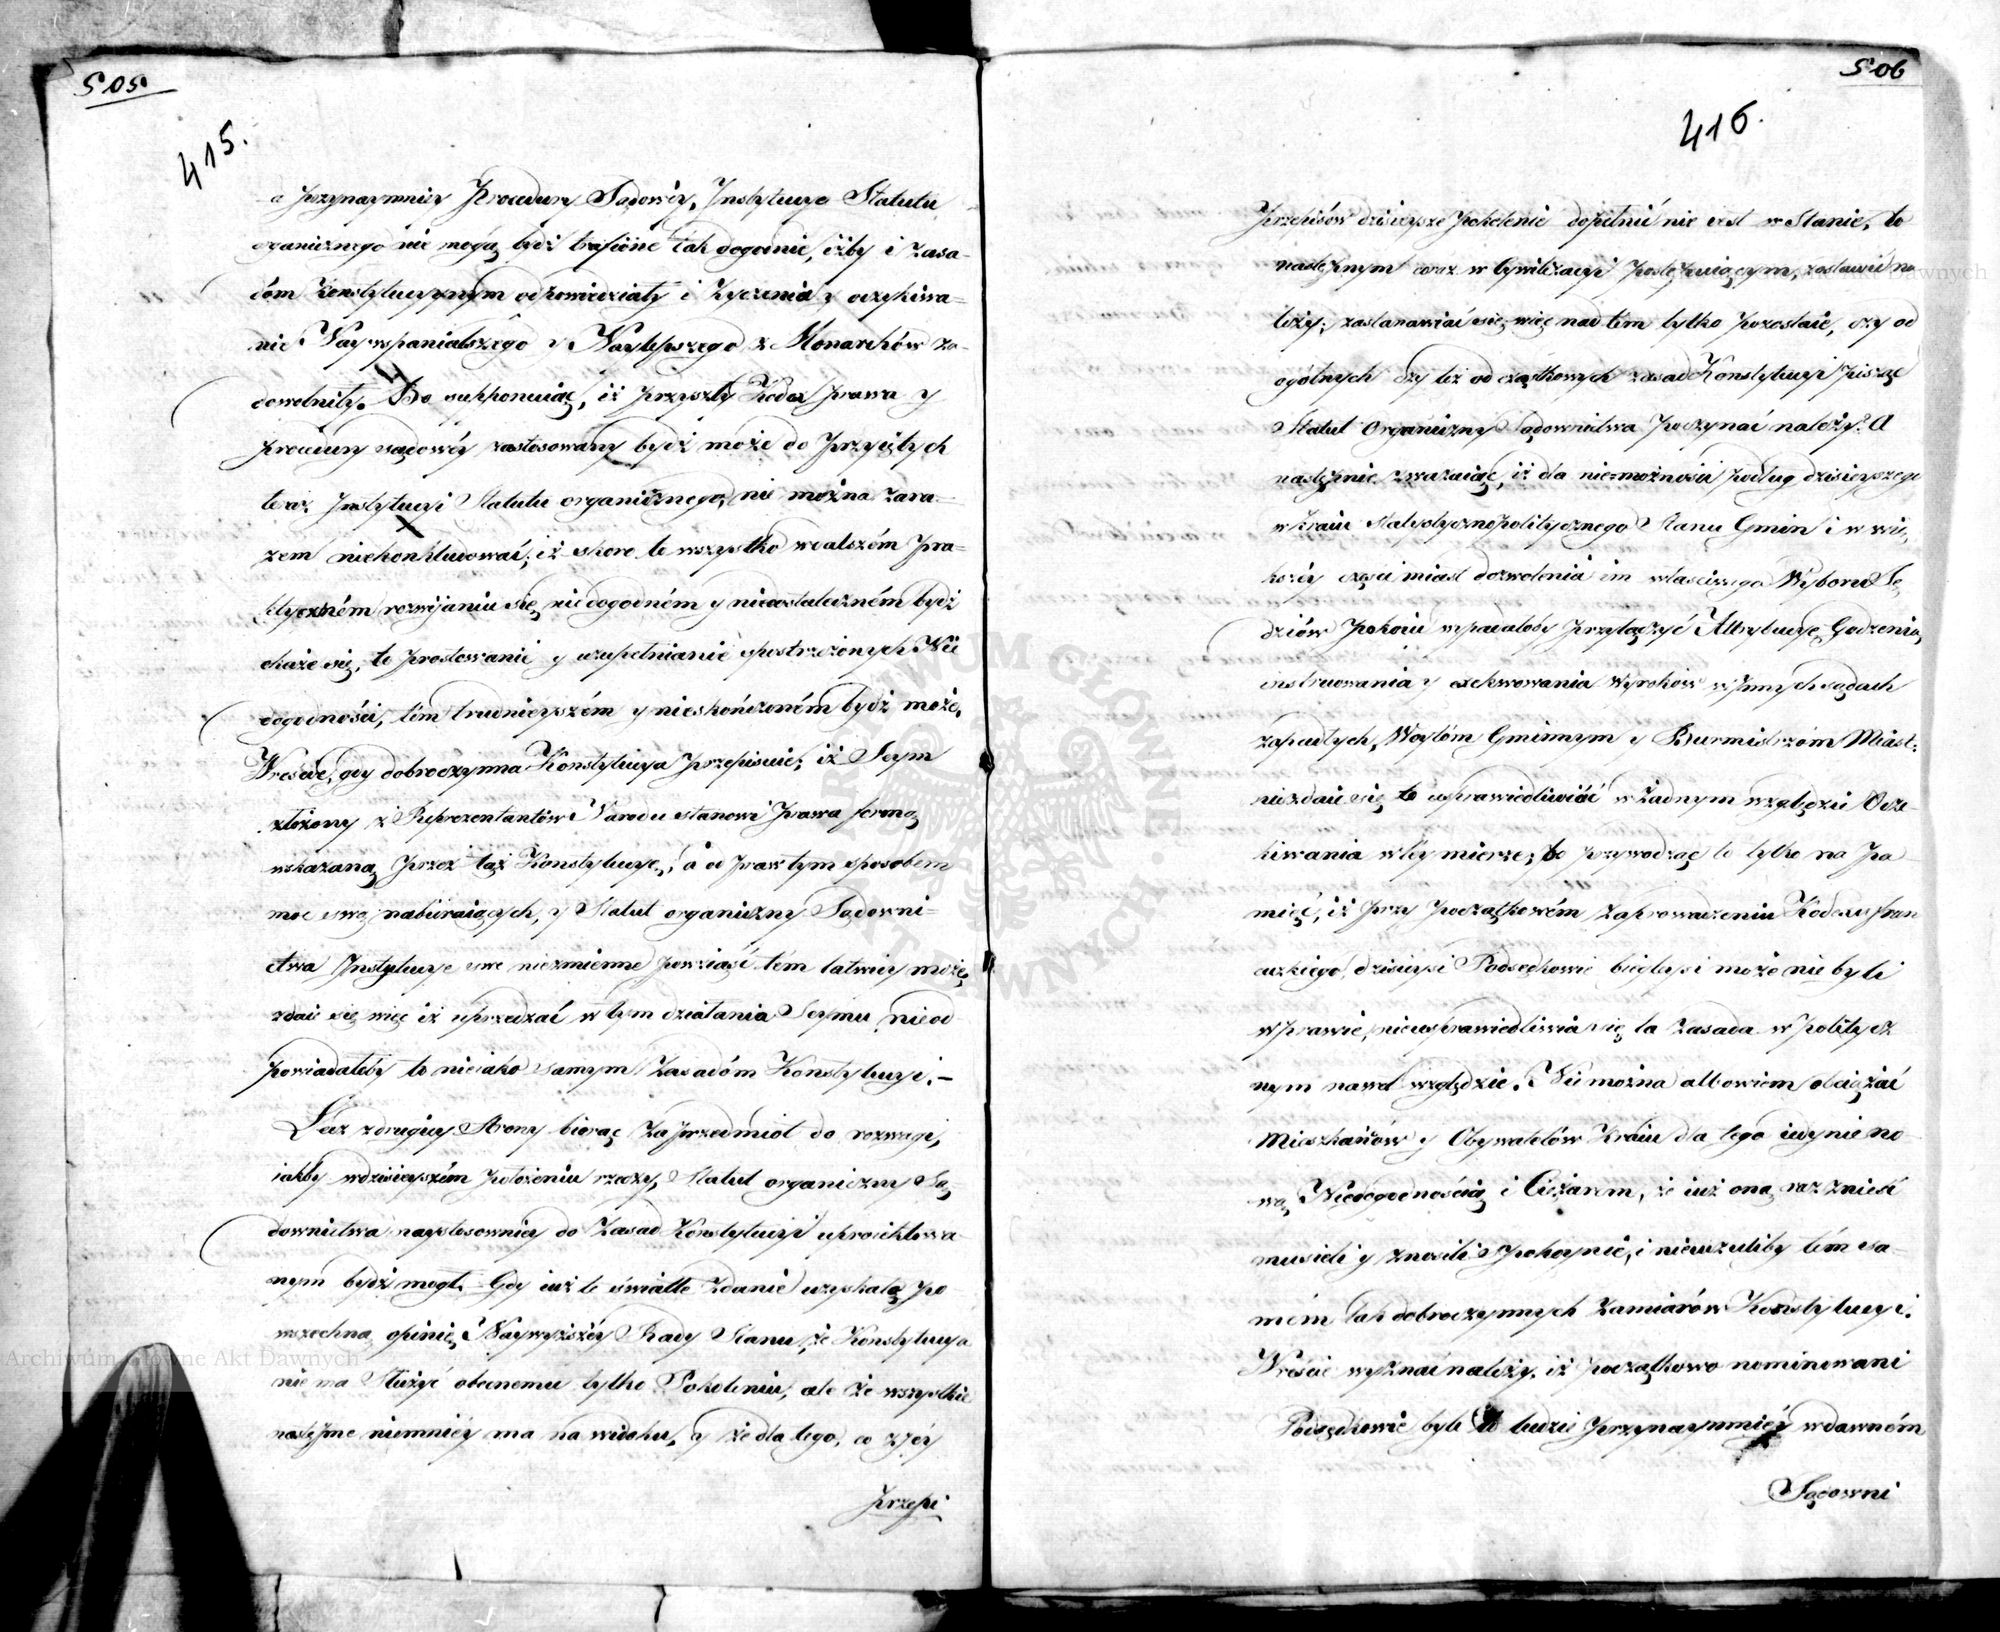 505
415.
a przynaymniey Procedury Sądowéy, Instytucye Statutu
organicznego nie mogą bydź trafione tak dogodnie, iżby i Zasa-
dóm Konstytucyynym odpowiedziały i życzenia y oczekiwa-
nie Naywspanialszego y Naylepszego z Monarchów za-
dowolniły. Bo supponuiąc, iż przyszły Kodex prawa y
procedury sądowéy zastosowany bydź może do przyiętych
teraz Instytucyi Statutu organicznego, nie można zara-
zem niekonkludować, iż skoro to wszystko w dalszém pra-
ktyczném rozwijaniu się niedogodném y niedostateczném bydź
okaże się, to prostowanie y uzupełnianie spostrzeżonych Nie
dogodności, tém trudnieyszém y nieskończoném bydź może.
Wreście, gdy dobroczynna Konstytucya przepisuie, iż Seym
złożony z Reprezentantów Narodu stanowi prawa formą
wskazaną przez też Konstytucyę, a od praw tym sposobem
moc swą nabieraiących, y Statut organiczny Sądowni-
ctwa Instytucye swe niezmienne powziąść tém łatwiey może,
zdaie się więc iż uprzedzać w tym działania Seymu nieod
powiadałoby to nieiako samym Zasadóm Konstytucyi. —
Lecz z drugiey Strony biorąc Za przedmiot do rozwagi,
iakby w dzisieyszém położeniu rzeczy, Statut organiczny Są
downictwa naystosowniey do Zasad Konstytucyi uproiektowa
nym bydź mógł. Gdy iuż to światłe zdanie uzyskało po
wszechną opinię Naywyższéy Rady Stanu, że Konstytucya
nie ma służyć obecnemu tylko Pokoleniu, ale że wszystkie
następne niemniéy ma na widoku, y że dla tego, co z Jéy
przepi
506
416.
Przepisów dzisieysze pokolenie dopełnić nie iest w Stanie, to
następnym coraz w Cywilizacyi postępuiącym, zostawić na
leży; zastanawiać się więc nad tém tylko pozostaie, czy od
ogólnych czy też od cząstkowych zasad Konstytucyi pisząc
Statut Organiczny Sądownictwa poczynać należy? A
następnie zważaiąc, iż dla niemożności podług dzisieyszego
w kraiu statystycznopolitycznego Stanu Gmin i w wię-
kszéy części miast dozwolenia im własciwego Wyboru Sę
dziów Pokoiu wypadałoby przyłączyć Attrybucye Godzenia,
instruowania y exekwowania Wyroków w Innych sądach
zapadłych, Woytóm Gminnym y Burmistrzóm Miast;
niezdaie się to usprawiedliwiać w Żadnym względzie Ocze
kiwania w téy mierze; bo przywodząc to tylko na Pa
mięć, iż przy początkowém zaprowadzeniu Kodexu fran
cuzkiego, dzisieysi Podsędkowie bieglejsi może nie byli
w prawie, nieusprawiedliwia się ta Zasada w politycz
nym nawet względzie. Nie można albowiem obciążać
Mieszkańców y Obywatelów Kraiu dla tego iedynie no-
wą Niedogodnością i Ciężarem, że iuż oną raz znieść
musieli y znosili spokoynie, i nieuczuliby tém sa-
mém tak dobroczynnych zamiarów Konstytucyi.
Wreście wyznać należy, iż początkowo nominowani
Podsędkowie byli to ludzie przynaymniéy w dawném
Sądowni
ARCHIWUM GŁÓWNE AKT DAWNYCH
Archiwum Główne Akt Dawnych